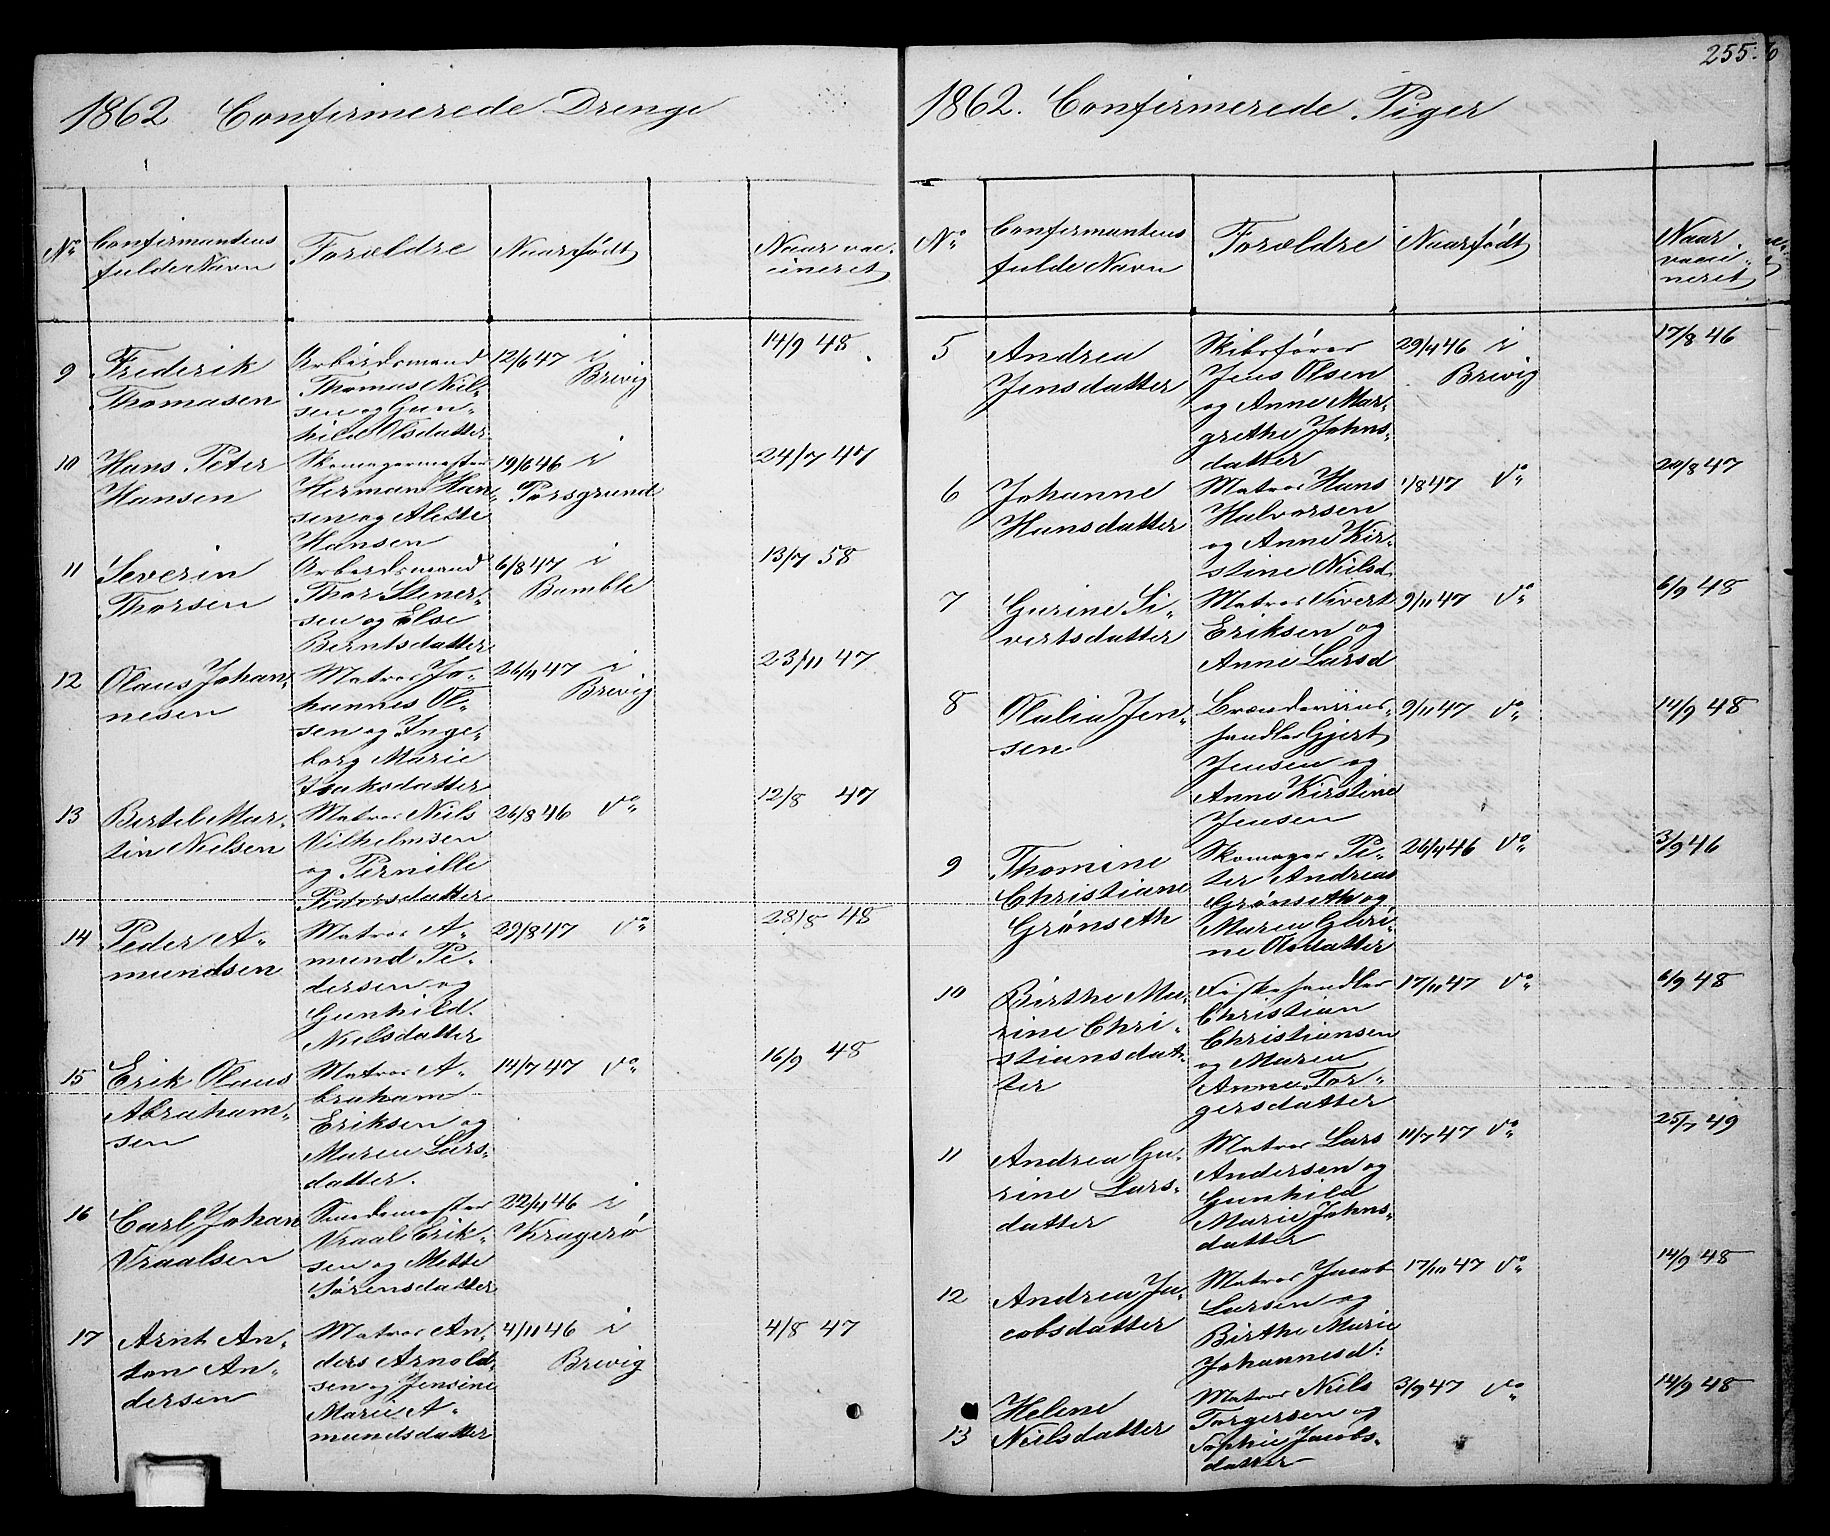 255.
1862 Confirmerede Drenge
No Confirmantens fulde Navn Forældre Naar født Naar vaccineret
9 Frederik Thomasen
Arbeidsmand Thomas Nielsen og Gunhild Olsdatter
12/6 47 i Brevig
14/9 48
10 Hans Peter Hansen
Skomagermester Herman Hansen og Alette Hansen
19/6 46 i Porsgrund
24/7 47
11 Severin Thorsen
Arbeidsmand Thor Stenersen og Else Berntsdatter
6/8 47 i Bamble
13/7 58
12 Olaus Johannesen
Matros Johannes Olsen og Ingeborg Marie Isaksdatter
26/9 47 i Brevig
23/11 47
13 Bertel Martin Nielsen
Matros Niels Vilhelmsen og Pernille Pedersdatter
26/8 46 Do
12/8 47
14 Peder Amundsen
Matros Amund Pedersen og Gunhild Nielsdatter
29/8 47 Do
28/8 48
15 Erik Olaus Abrahamsen
Matros Abraham Eriksen og Maren Larsdatter.
14/7 47 Do
16/9 48
16 Carl Johan Vraalsen
Smedemester Vraal Eriksen og Mette Sørensdatter
22/11 46 i Kragerø
17 Arnt Anton Andersen
Matros Anders Arnoldsen og Jensine Marie Amundsdatter
4/11 46 i Brevig
4/8 47
1862. Confirmerede Piger
No Confirmantens fulde Navn Forældre Naar født Naar vaccineret
5 Andrea Jensdatter
Skibsfører Jens Olsen og Anne Margrethe Johnsdatter
29/4 46 i Brevig
17/8 46
6 Johanne Hansdatter
Matros Hans Halvorsen og Anne Kirstine Nielsd.
1/8 47 Do
20/8 47
7 Gurine Sivertsdatter
Matros Sivert Eriksen og Anne Larsd
9/11 47 Do
6/9 48
8 Olalia Jensen
Brændeviinshandler Gjert Jensen og Anne Kirstine Jensen
9/11 47 Do
14/9 48
9 Thomine Christiane Grønseth
Skomager Peter Andreas Grønseth og Maren Gurine Olsdatter
26/4 46 Do
3/9 46
10 Birthe Marine Christiansdatter
Fiskehandler Christian Christiansen og Maren Anne Torgersdatter
17/11 47 Do
6/9 48
11 Andrea Gurine Larsdatter
Matros Lars Andersen og Gunhild Marie Johnsdatter
11/7 47 Do
25/7 49
12 Andrea Jacobsdatter
Matros Jacob Larsen og Birthe Marie Johannesd:
17/10 47 Do
14/9 48
13 Helene Nielsdatter
Matros Niels Torgersen og Sophie Jacobsdatter
3/9 47 Do
14/9 48